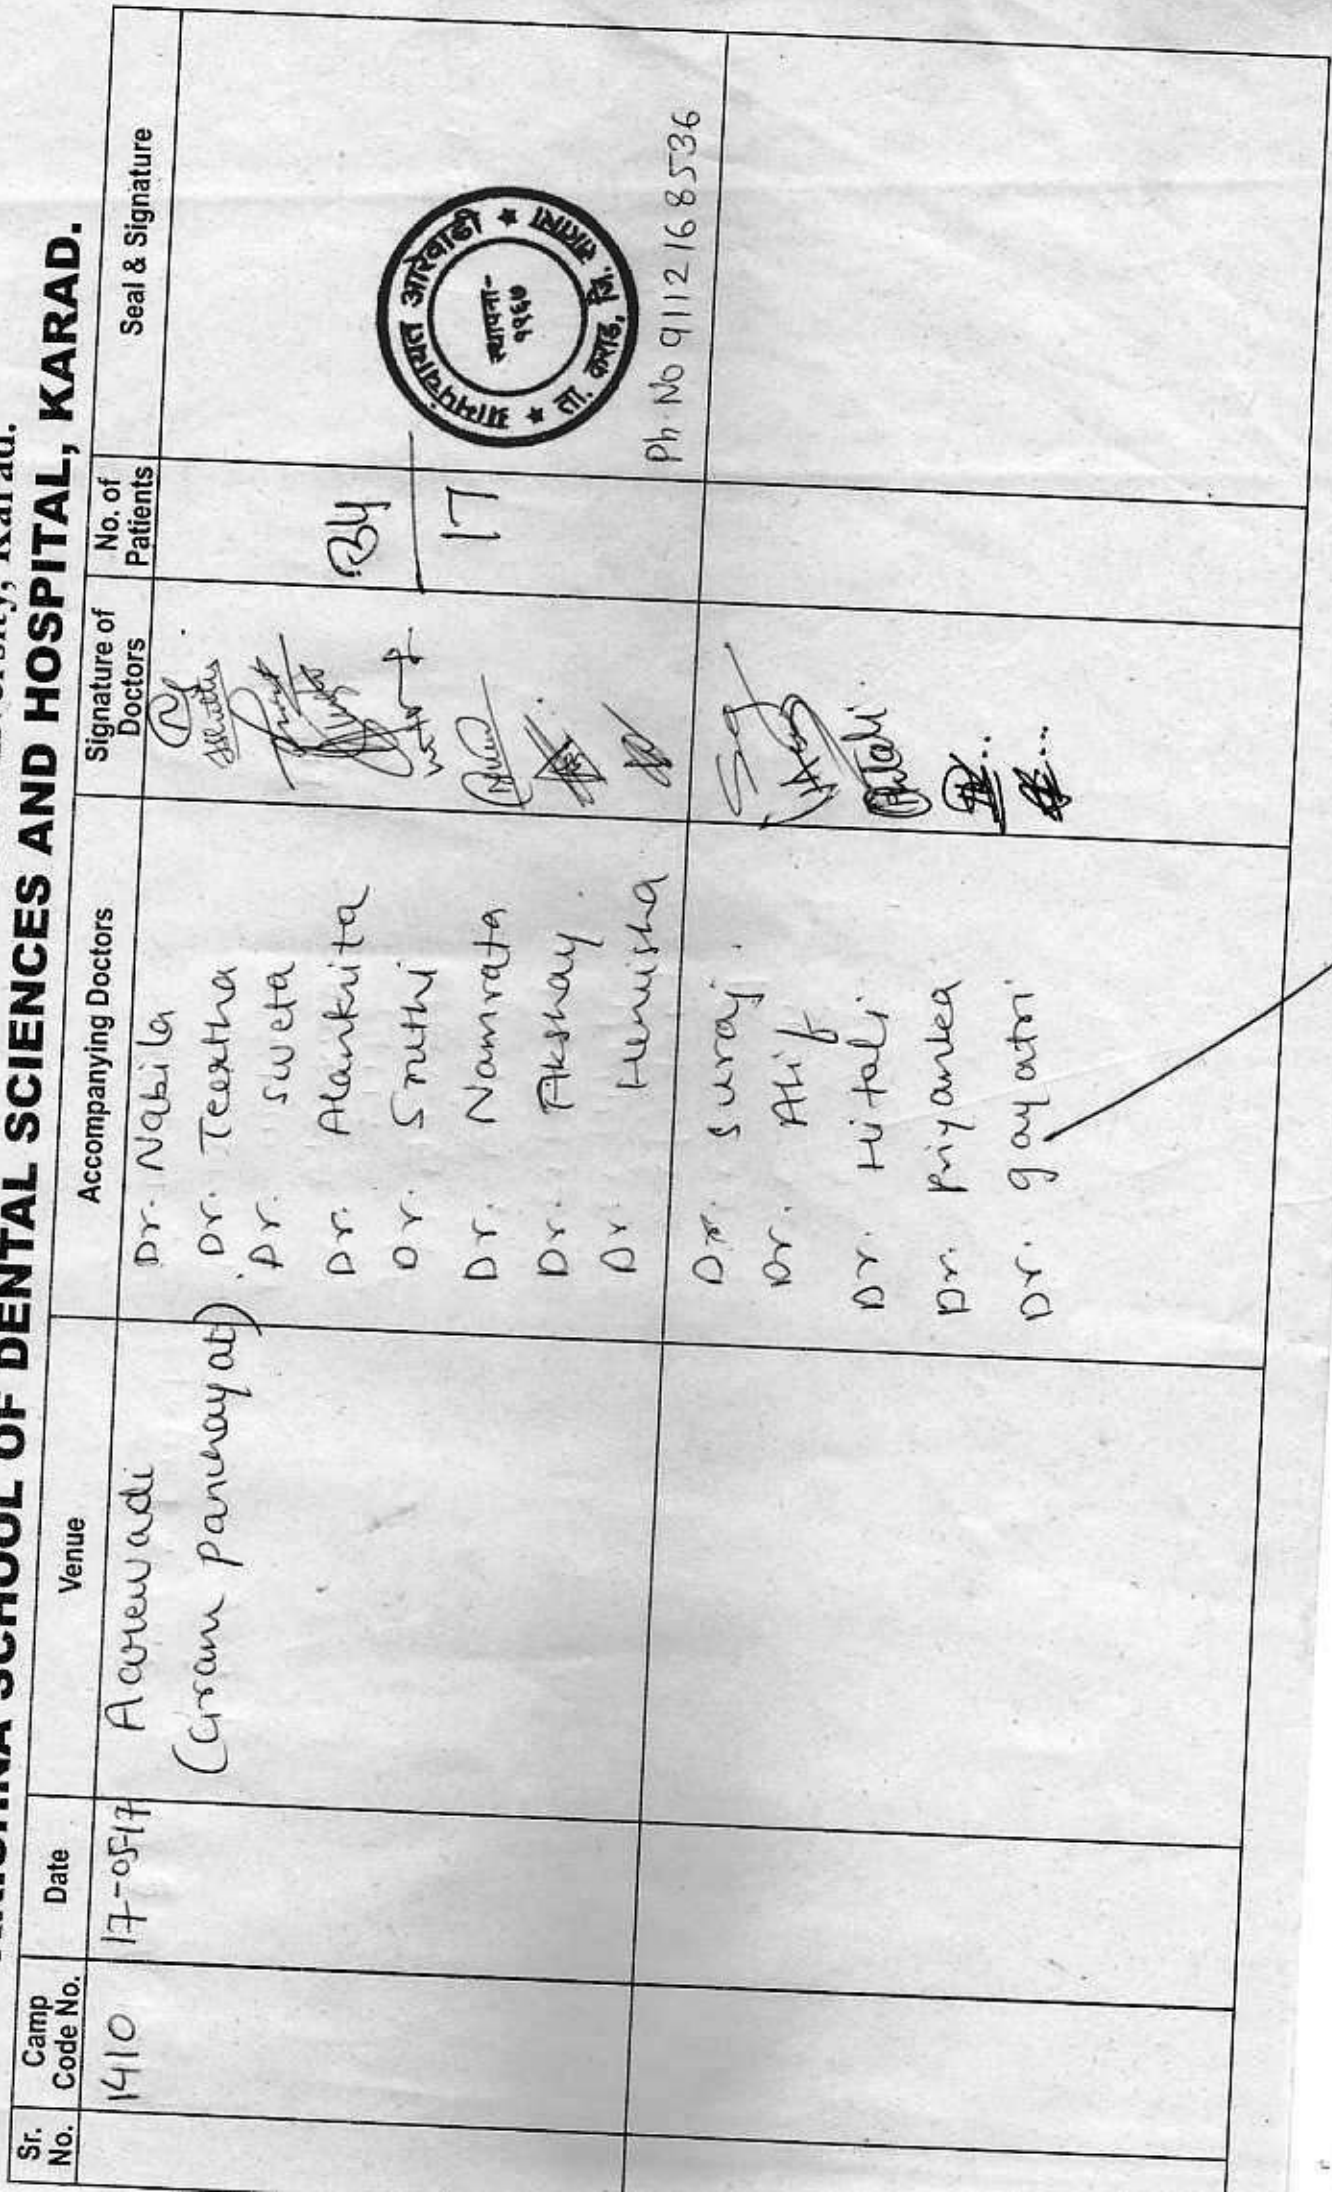 SCHOOL OF DENTAL SCIENCES AND HOSPITAL, KARAD.
Sr. No.
Camp Code No.
Date
Venue
Accompanying Doctors
Signature of Doctors
No. of Patients
Seal & Signature
1410
17-05-17
Aarewadi
(Gram Panchayat)
Dr. Nabila
Dr. Teertha
Dr. Sweta
Dr. Alankrita
Dr. Sruthi
Dr. Namrata
Dr. Akshay.
Dr.
34
17
ग्रामपंचायत आरेवाडी
ता. कराड, जि. सातारा
स्थापना-
१९६७
Ph. No 9112168536
Dr. Suraj.
Dr.
Dr. Hitali
Dr. Priyanka
Dr. gayatri